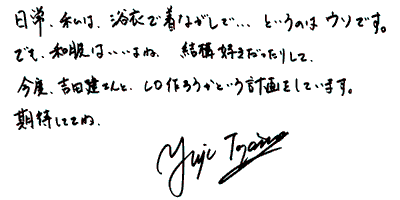 日常、私は、浴衣で着ながしで…というのはウソです。
でも、和服は…いいよね、結構好きだったりして、
今度、吉田建さんと、CD作ろうかという計画をしています。
期待しててね、
Yuji